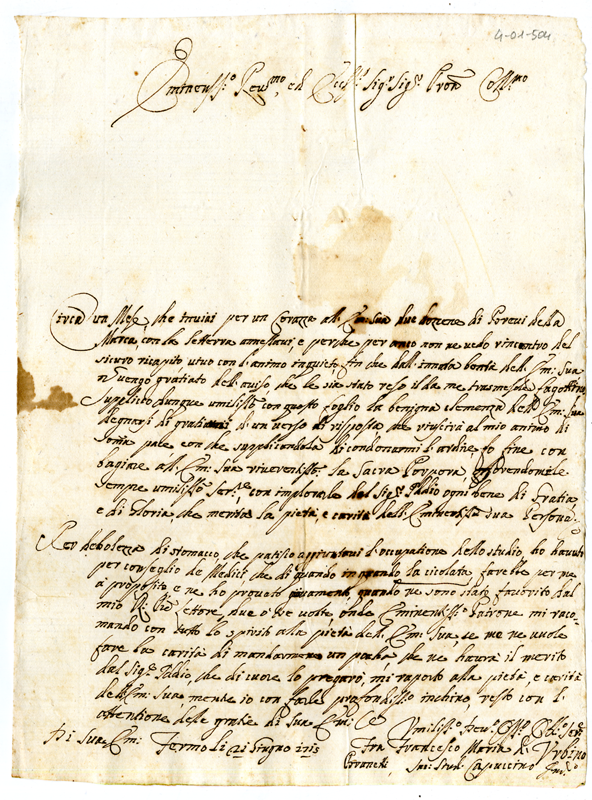 4-01-504
Eminentiss.o Rev.mo, ed Ecc.mo Sig.r Sig.r Pron Coll.mo
Circa un Mese, che inviai per un Corazza all' Em: Sua due dozene di
Marca, con la lettera annessavi, e perche per anco non ne vedo rincontro del
sicuro ricapito, vivo con l'animo inquieto fin che dall' innata bontà dell' Em: Sua
n' vengo gratiato dell' aviso, che le sia stato reso il da me trasmesole
Supplico dunque umiliss.te con questo foglio la benigna clemenza dell' Em: Sua
degnarsi di gratiarmi di un verso di risposta che riuscirà al mio animo di
somma pace con che supplicandola di condonarmi l'ardire fo fine con
bagiare all' Em: Sua riverentiss.te la Sacra Porpora,
sempre umiliss.o ser.re, con implorarle dal Sig.r Iddio ogni bene di Gratia,
e di Gloria, che merita la pietà, e carità dell' Eminentiss.a Sua Persona.
Per debolezza di stomacco, che patisco l'occupatione dello studio, ho havuto
per conseglio de Medici che di quando in quando la ciolata farebbe per me
a proposito, e ne ho provato giovamenti quando ne sono stato favorito dal
mio P. due, o tre volte, onde Eminentiss.o Padrone mi raco-
mando con tutto lo spirito alla pietà dell' Em: Sua, se me ne vuole
fare la carità di mandarmene un che ne haverà il merito
dal Sig.r Iddio, che di cuore lo pregarò, mi raporto alla pietà, e carità
dell' Em: Sua mentre io con profondiss.o inchino, resto con l'
attentione delle gratie di Sua Em:
Di Sua Em: Fermo li 21 Giugno
Umiliss.o Dev.mo
Fra Francesco Maria d' Urbino
Stud. Capuccino